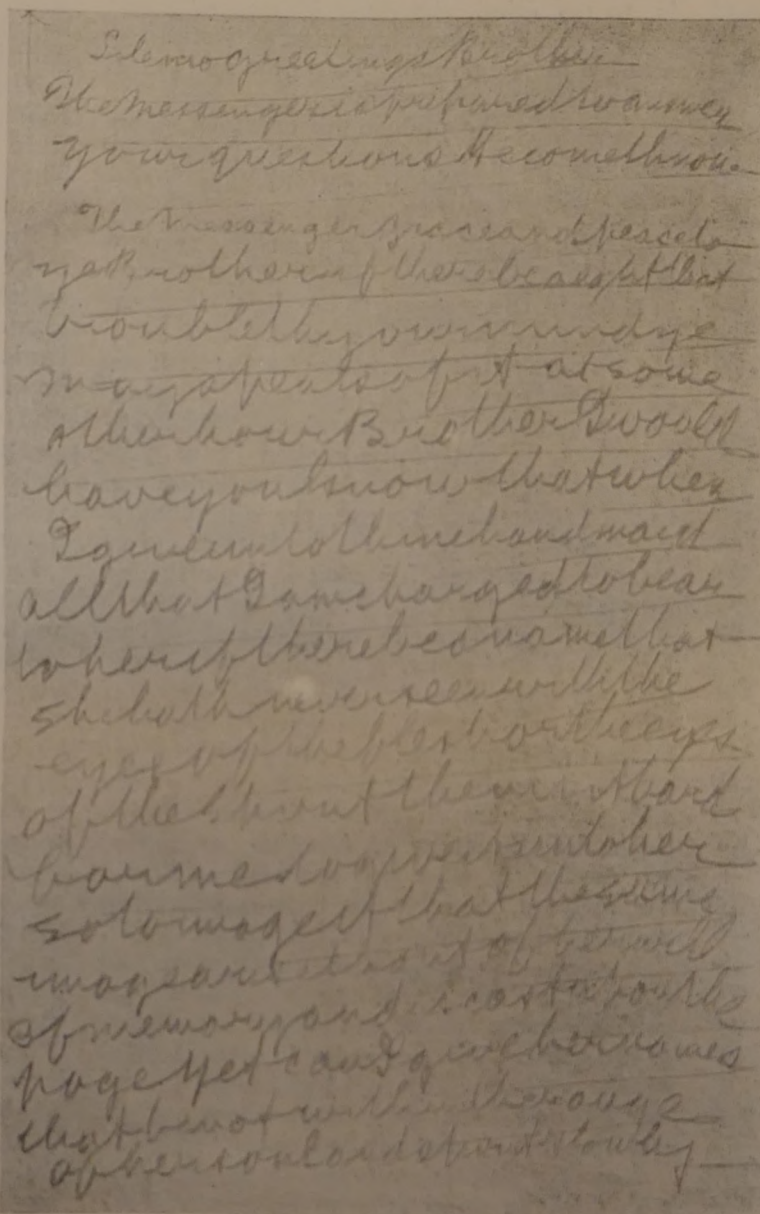 greetings Brother
The Messenger is prepared to answer
your questions He cometh now
The Messenger Grace and peace to
ye Brother if there be aught that
troubleth your mind ye
may speak of it at some
other hour Brother I would
have you know that when
I give unto thine handmaid
all that I am charged to bear
to her if there be a name that
she hath never seen with the
eyes of the flesh or the eyes
of the spirit then is it hard
for me to give it unto her
so to image it that the same
image out of her well
of memory and is cast upon the
page Yet can I give her names
that be not within the range
of her soul and spirit's